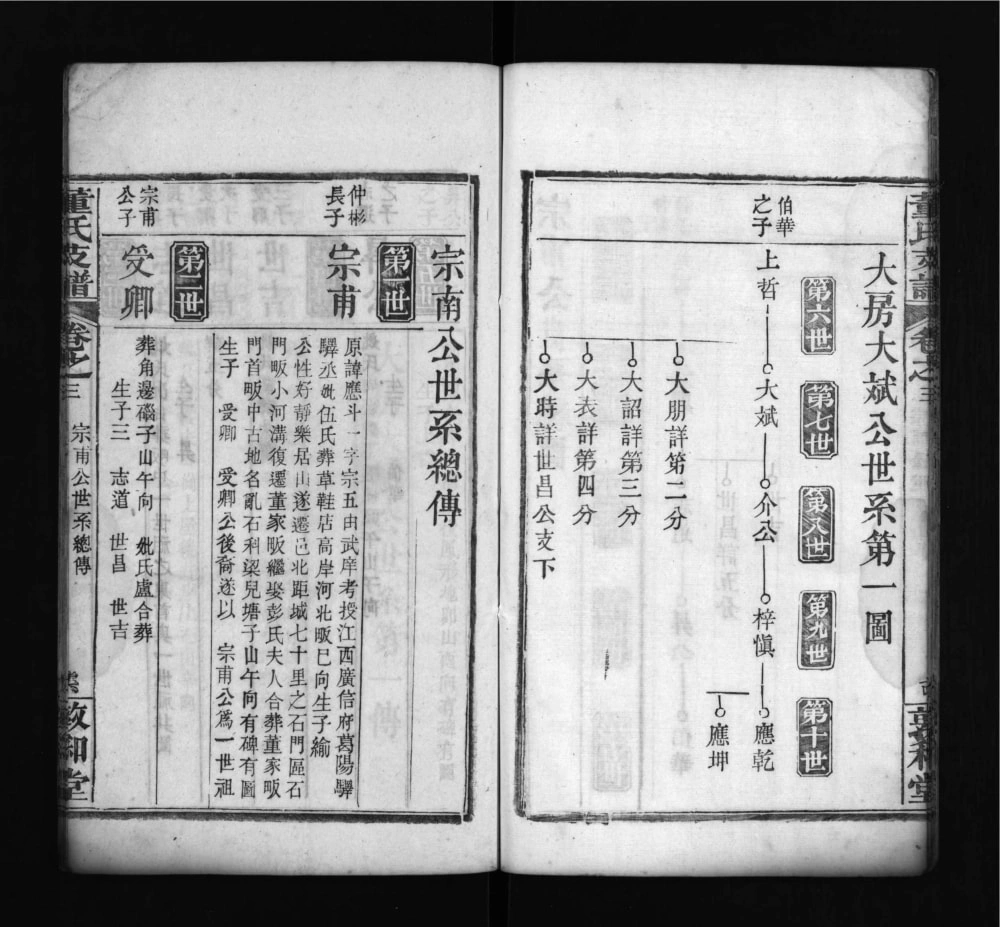 大房大斌公世系第一圖
第六世
第七世
第八世
第九世
第十世
伯華
之子
上哲
大斌
介公
梓慎
應乾
應坤
大朋詳第二分
大詔詳第三分
大表詳第四分
大時詳世昌公支下
宗南公世系總傳
第一世
仲彬
長子
宗甫
原諱應斗一字宗五由武庠考授江西廣信府葛陽驛
驛丞妣伍氏葬草鞋店高岸河北畈巳向生子綸
公性好靜樂居山遂遷邑北距城七十里之石門區石
門畈小河溝復遷董家畈繼娶彭氏夫人合葬董家畈
門首畈中古地名亂石科梁兒塘子山午向有碑有圖
生子 受卿 受卿公後裔遂以 宗甫公爲一世祖
第二世
宗甫
公子
受卿
葬角邊磂子山午向 妣氏盧合葬
生子三 志道 世昌 世吉
董氏支譜
卷之三
宗甫公世系總傳
敦和堂